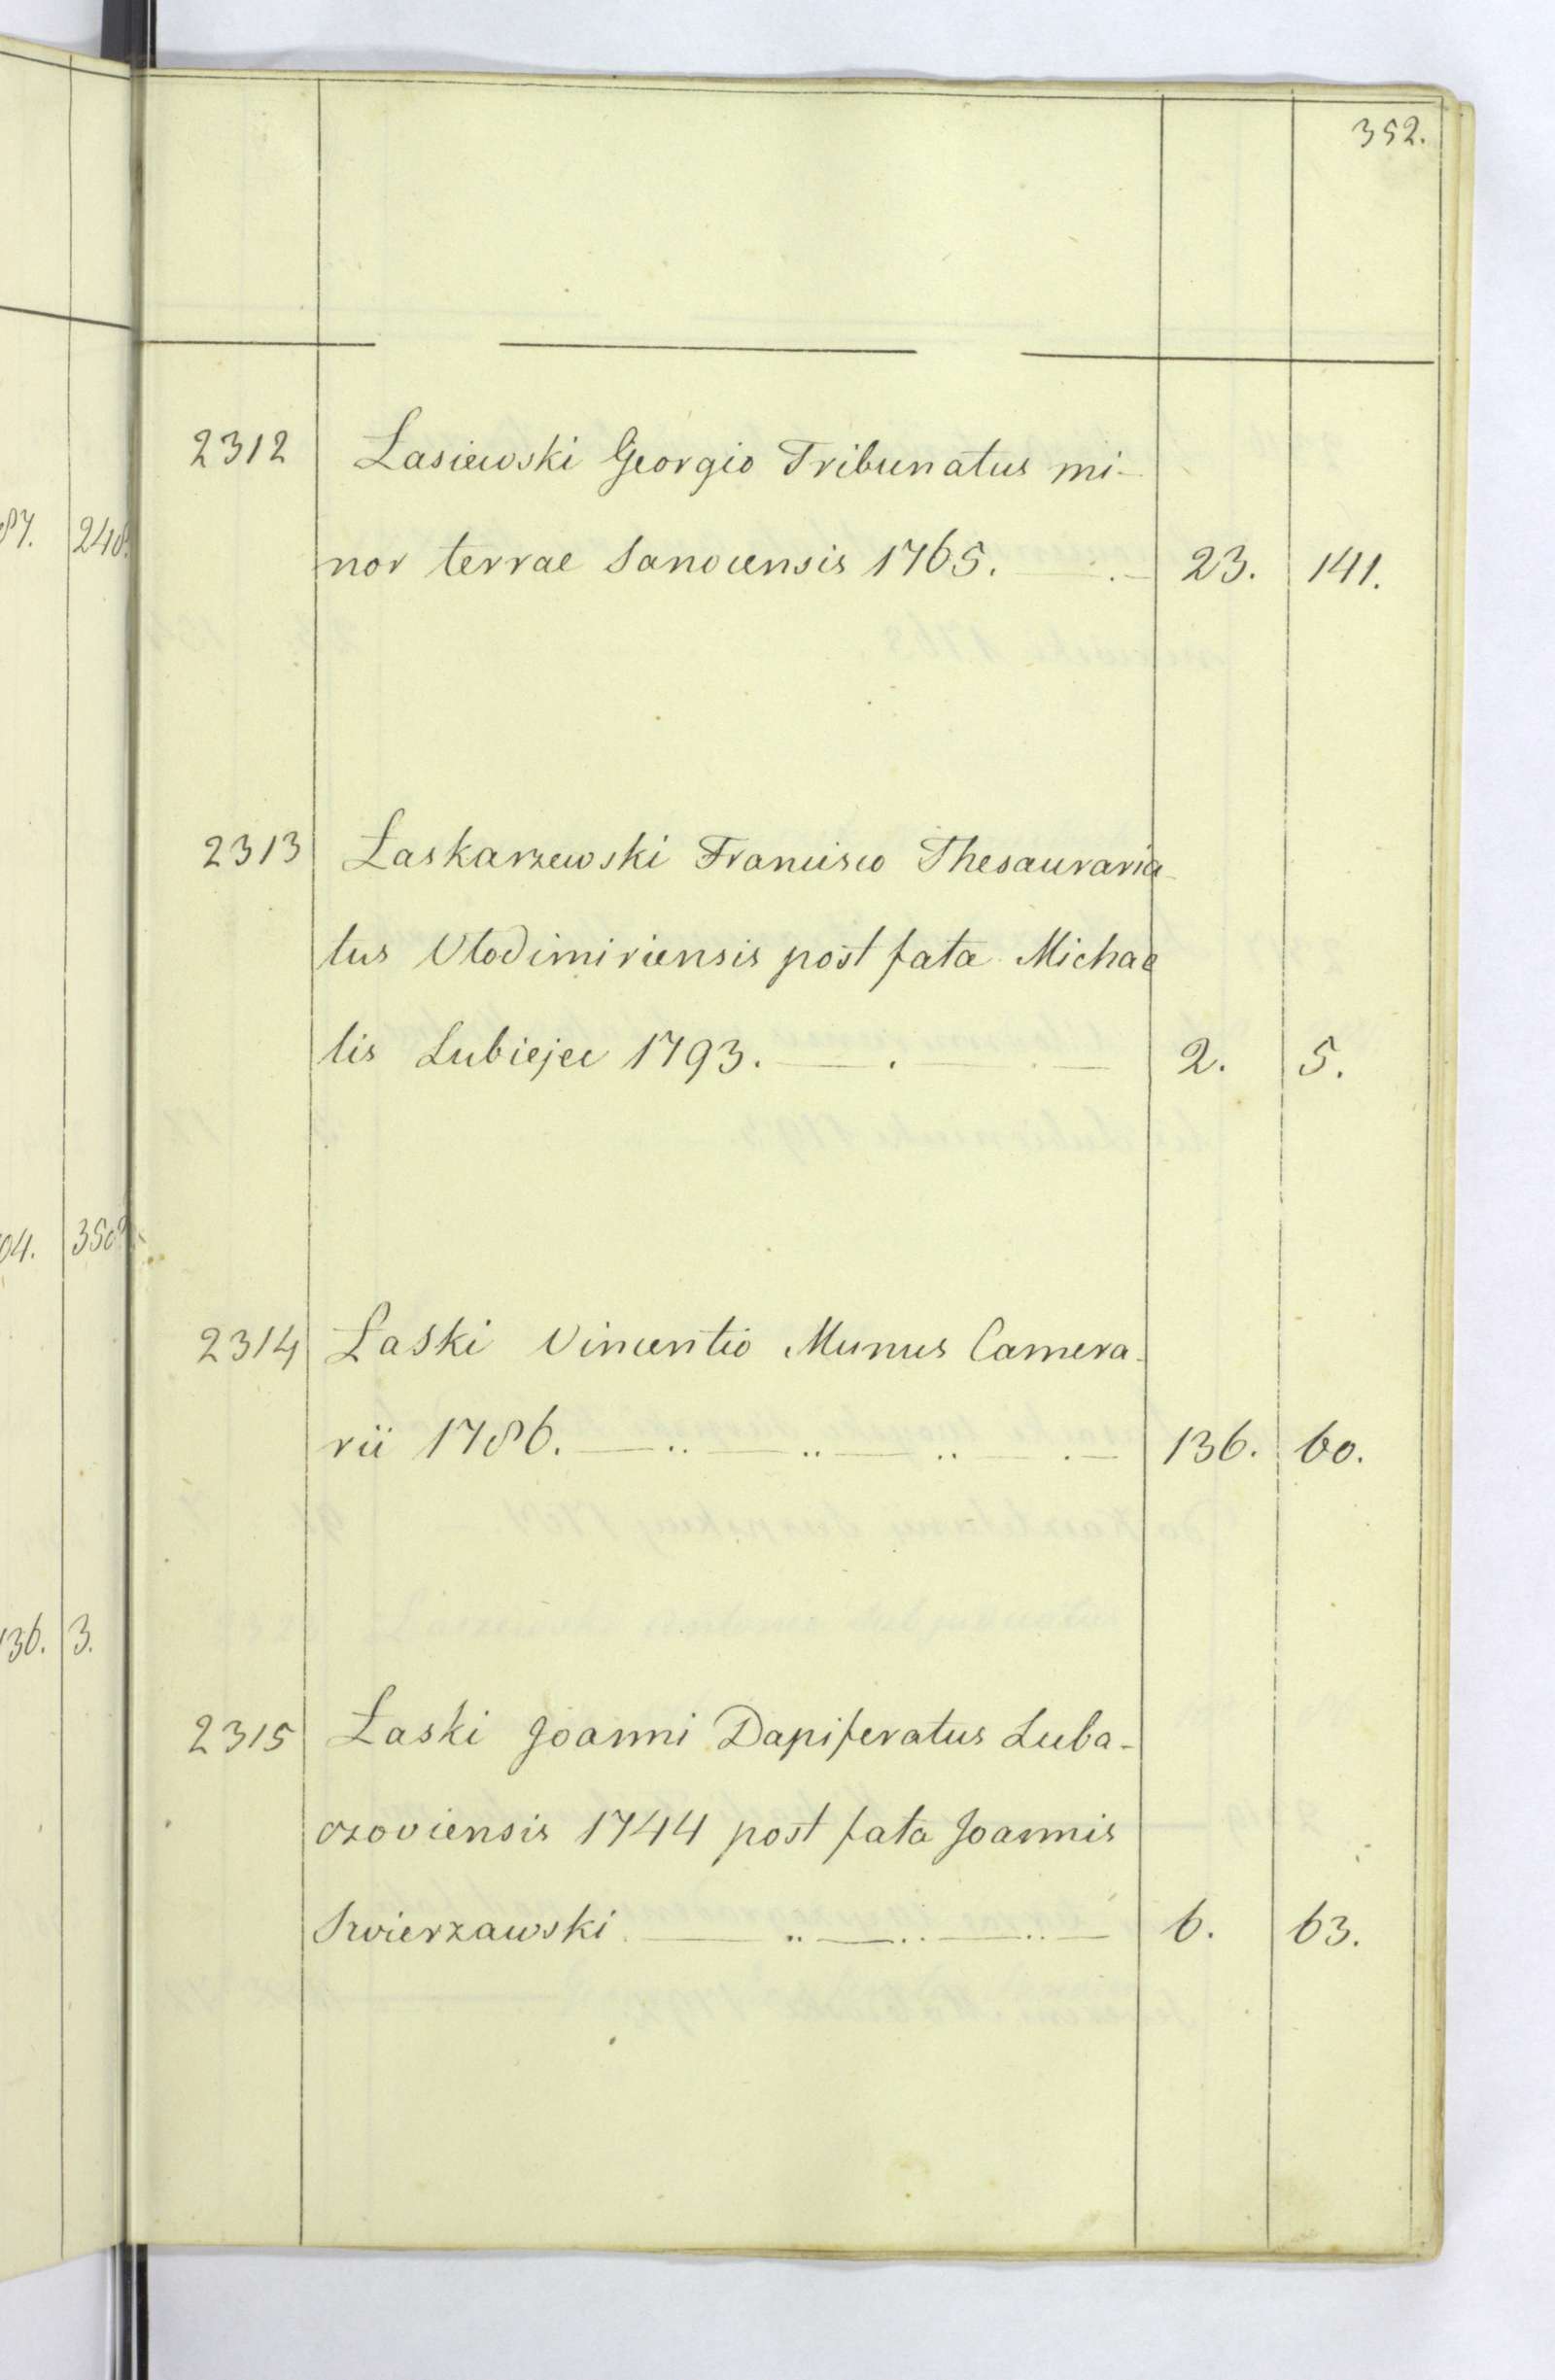 352.
2312 Łasiewski Georgio Tribunatus mi-
nor terrae Sanocensis 1765. 23. 141.
2313 Łaskarzewski Francisco Thesauraria-
tus Vlodimiriensis post fata Michae
lis Lubiejec 1793. 2. 5.
2314 Łaski Vincentio Munus Camera-
rii 1786. 136. 60.
2315 Łaski Joanni Dapiferatus Luba-
czoviensis 1744 post fata Joannis
Swierzawski 6. 63.
87. 248.
04. 350.
136. 3.